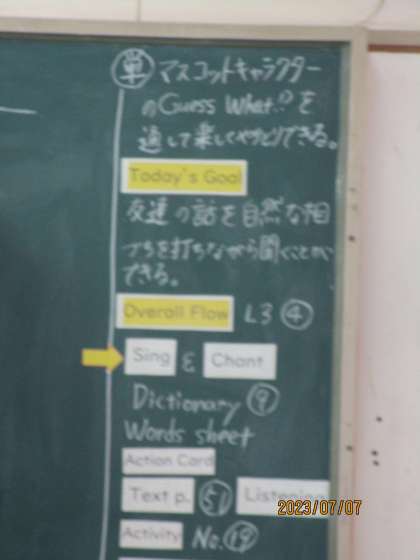 単 マスコットキャラクター
のGuess What!?を
通して楽しくやりとりできる。
Today's Goal
友達の話を自然な相
づちを打ちながら聞くことが
できる。
Overall Flow L3 ④
Sing & Chant
Dictionary ⑨
Words sheet
Action Card
Text p. 51 Listening
Activity No.⑲
2023/07/07